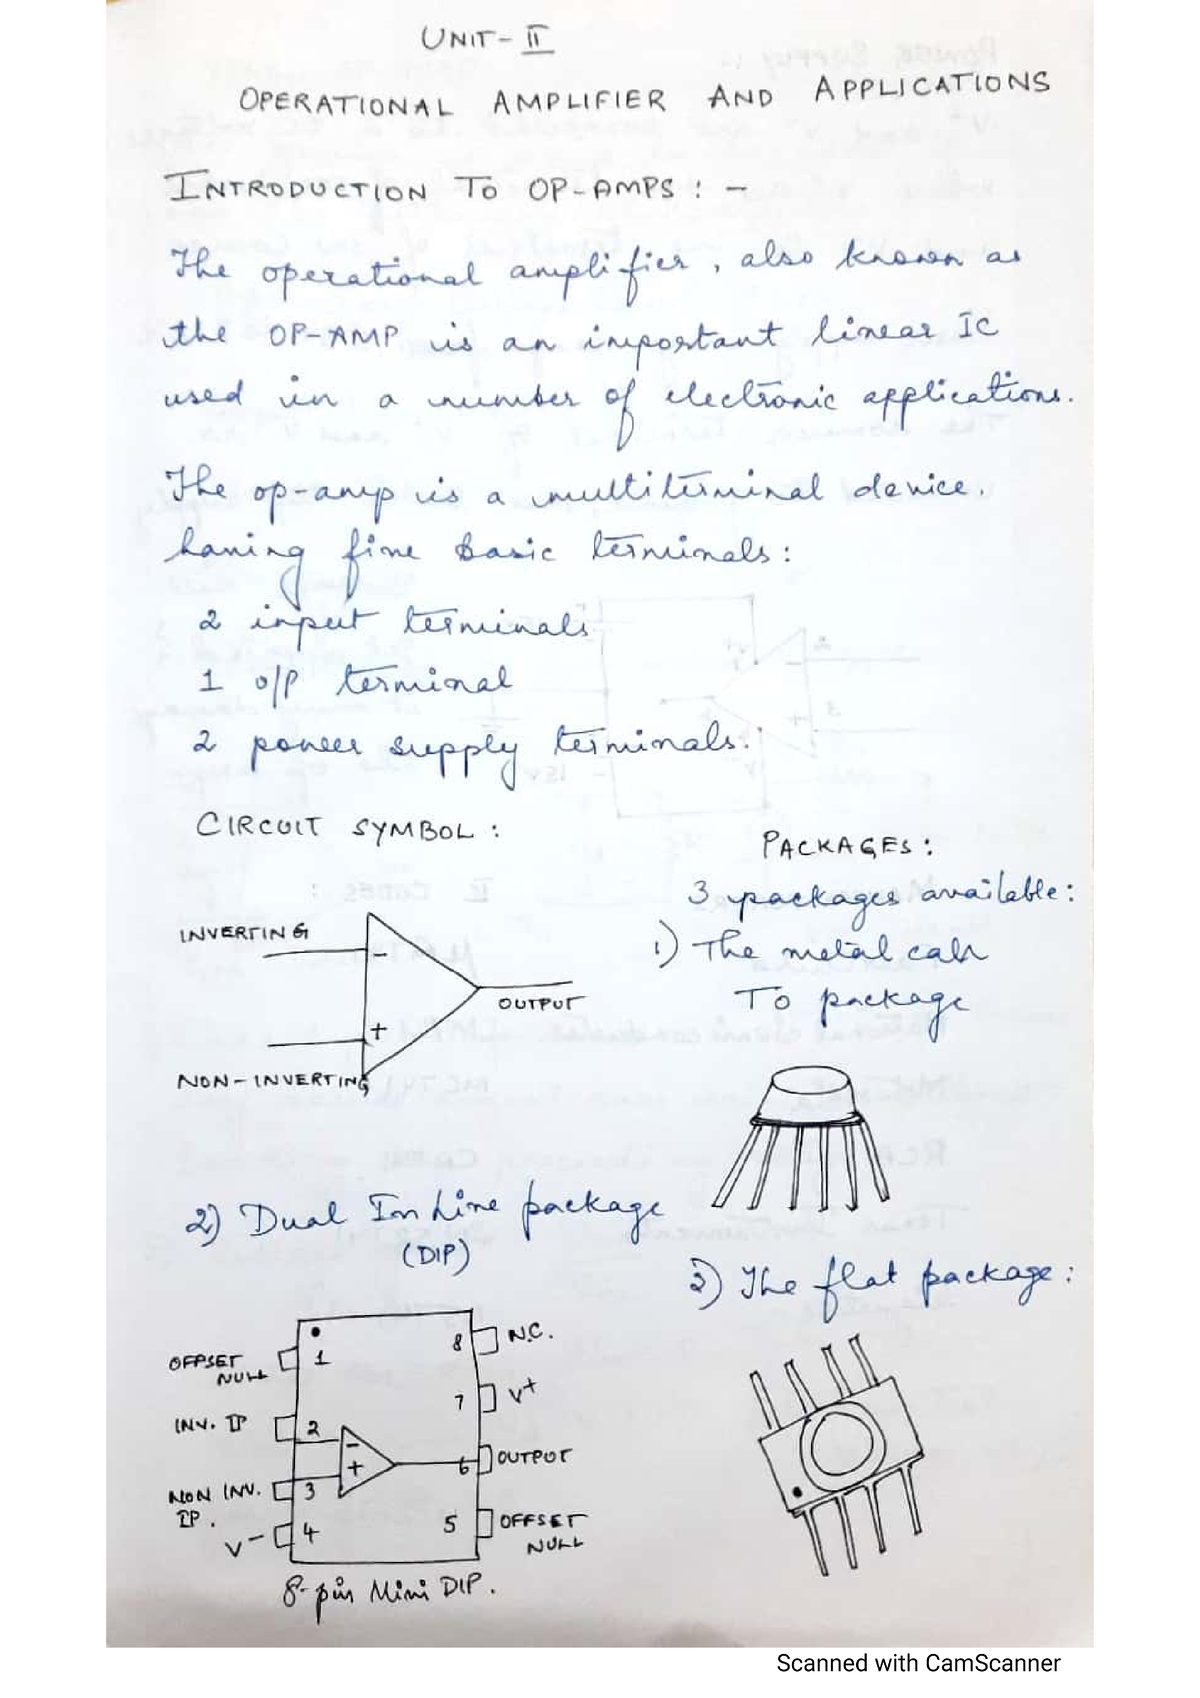 UNIT-II
OPERATIONAL AMPLIFIER AND APPLICATIONS
INTRODUCTION TO OP-AMPS : -
The operational amplifier, also known as
the OP-AMP is an important linear IC
used in a number of electronic applications.
The op-amp is a multiterminal device.
having five basic terminals:
2 input terminals
1 o/p terminal
2 power supply terminals.
CIRCUIT SYMBOL :
INVERTING
-
+
OUTPUT
NON-INVERTING
PACKAGES:
3 packages available:
1) The metal can
TO package
2) Dual In Line package
(DIP)
OFFSET
NULL
1
8
N.C.
7
V+
INV. IP
2
-
+
6
OUTPUT
NON INV.
IP.
3
V-
4
5
OFFSET
NULL
8-pin Mini DIP.
3) The flat package:
Scanned with CamScanner